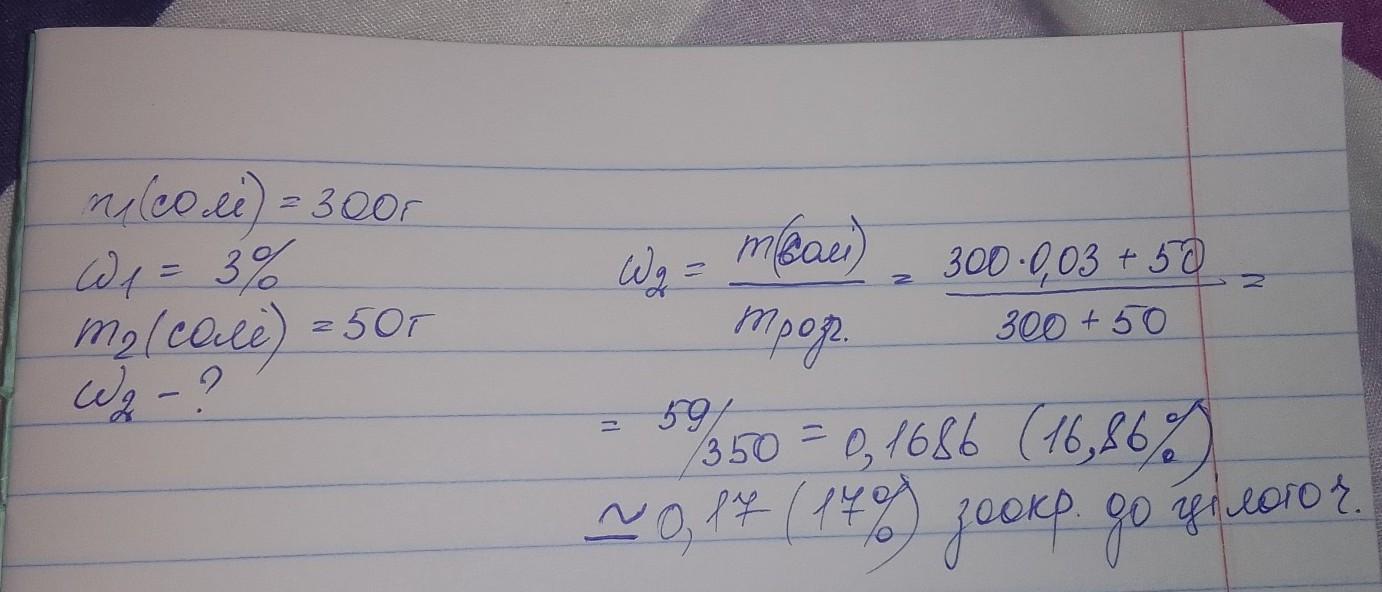 m1(солі) = 300г
ω1 = 3%
m2(солі) = 50г
ω2 - ?
ω2 = m(солі) / mрозч. = 300·0,03 + 50 / 300 + 50 =
= 59/350 = 0,1686 (16,86%)
≃ 0,17 (17%) заокр. до цілого ч.